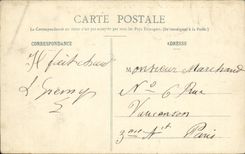 CARTE POSTALE
La Correspondance au recto n'est pas acceptée par tous les Pays Étrangers. (Se renseigner à la Poste).
CORRESPONDANCE
ADRESSE
Il fait chaud
Monsieur Marchand
No 6 Rue
Vaucanson
3me Art
Paris